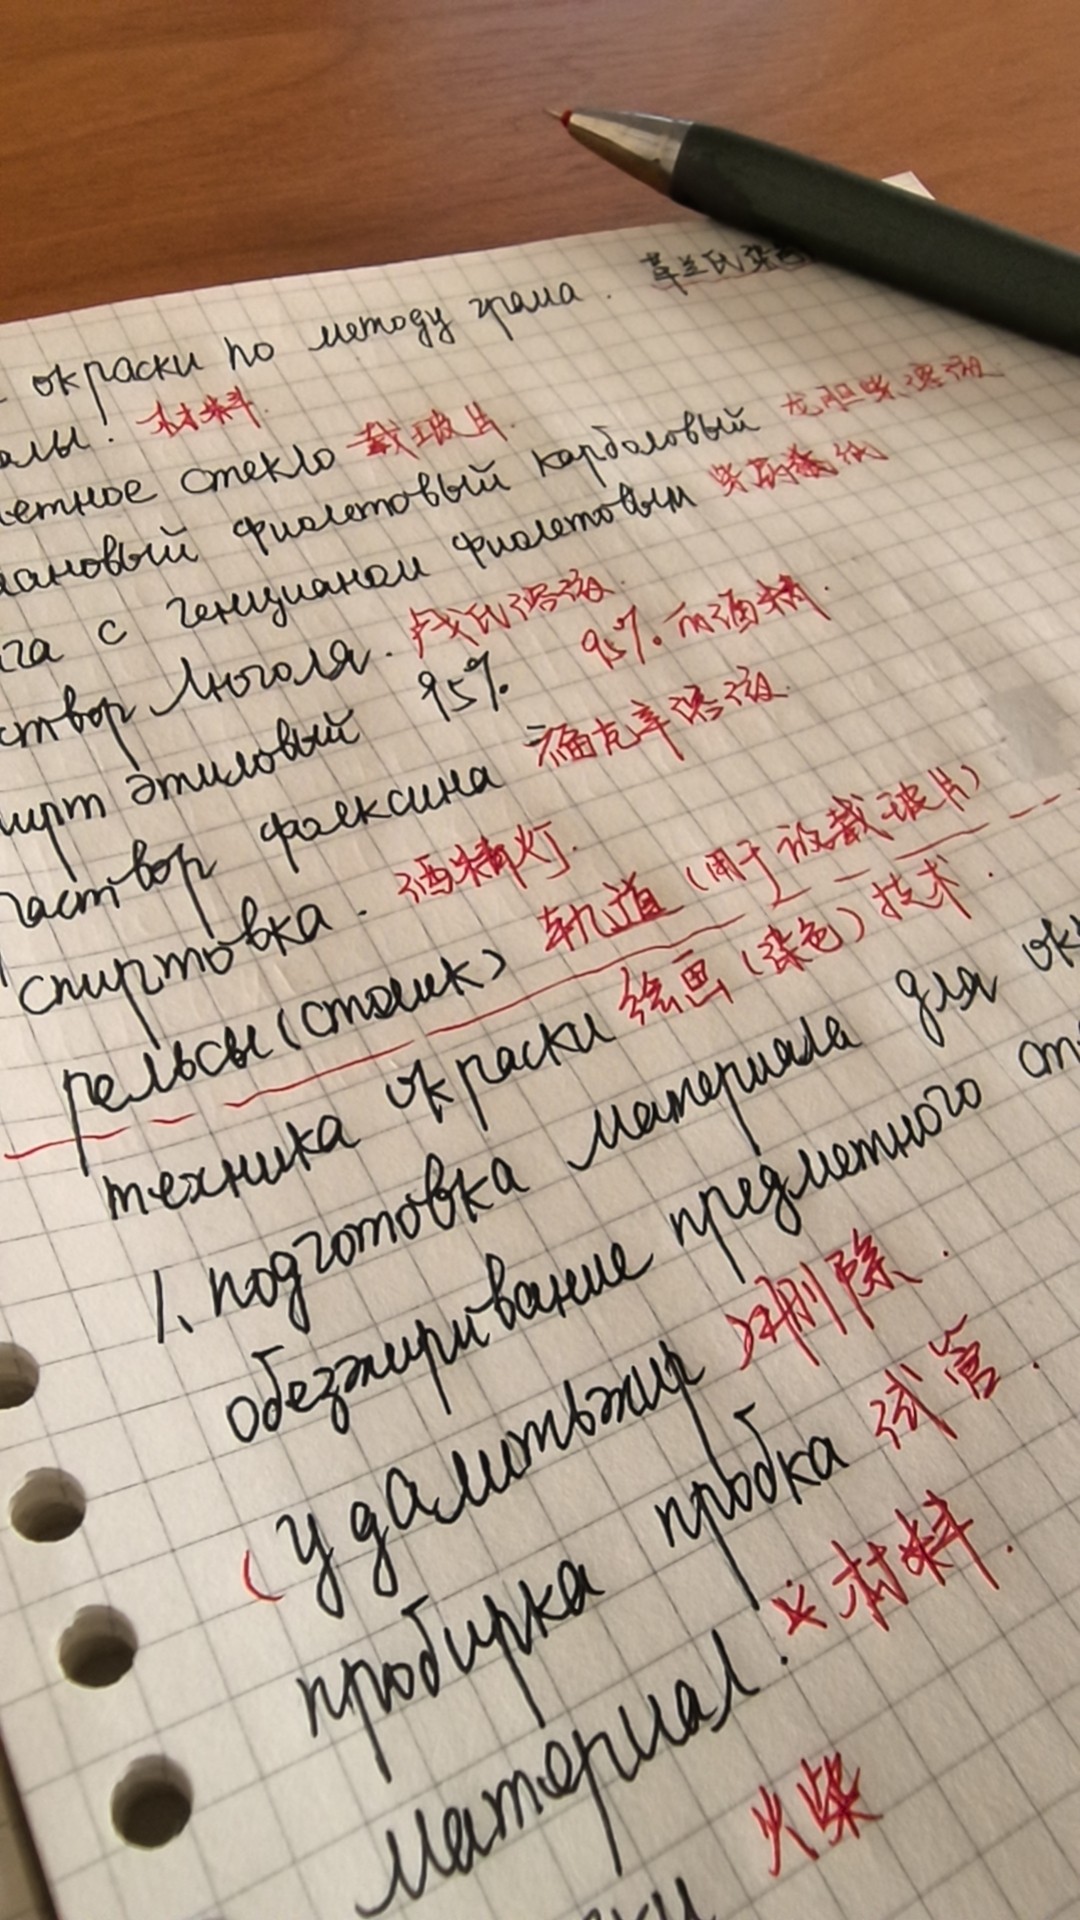 окраски по методу грама. 革兰氏染色
алы: 材料.
етное стекло 载玻片.
ановый фиолетовый карболовый 龙胆紫溶液
га с генцианом фиолетовым
створ Люголя. 卢戈氏溶液.
ирт этиловый 95% 95%丙酒精.
раствор фоексина 福克辛溶液.
спиртовка. 酒精灯.
рельсы (стоик) 轨道 (用于设载玻片)
техника окраски 绘画 (染色) 技术.
1. подготовка материала для ок
обезжиривание предметного ст
(удалитьжир 删除.
пробирка пробка 试管.
материал. 材料.
ки 火柴